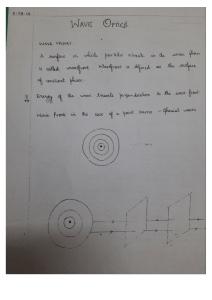 WAVE OPTICS
WAVE FRONT:
A surface on which particles vibrate in the same phase
is called wavefront. Wavefront is defined as the surface
of constant phase.
Energy of the wave travels perpendicular to the wave front.
Wave front in the case of a point source - Spherical waves